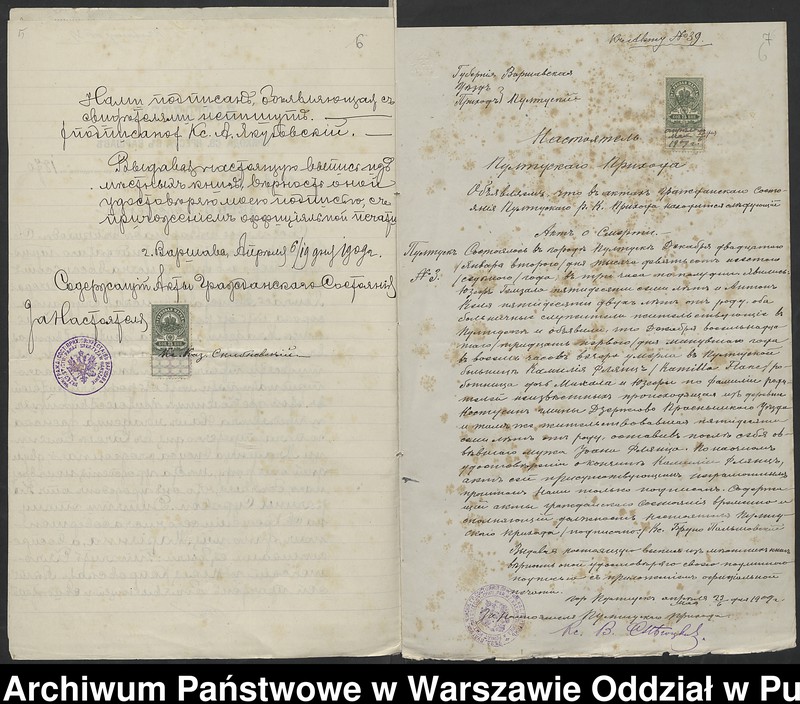 6
Нами подписанъ, объявляющая съ
свидѣтелями неграмотны.
/подписалъ/ Кс. А. Якубовскій. —
Выдавая настоящую выпись изъ
мѣстныхъ книгъ, вѣрность оной
удостовѣряю моею подписью, съ
приложеніемъ оффиціальной печати
г. Варшава, Апрѣля 6/19 дня 1909 г.
Содержащій Акты Гражданскаго Состоянія
За Настоятеля
Кс. Каз.
№ 39
7
6
Губернія Варшавская
Уѣздъ
Приходъ } Пултускій
Настоятель
Пултускаго Прихода
Объявляемъ, что въ актахъ Гражданскаго Состо-
янія Пултускаго р. К. Прихода находится слѣдующій
Актъ о Смерти. —
Пултускъ
№ 3.
Состоялось въ городѣ Пултускѣ Декабря двадцатаго
/Января втораго/ дня тысяча девятьсотъ шестого
/седьмого/ года, въ три часа по полудни. Явились:
пятидесяти семи лѣтъ и Антонъ
пятидесяти двухъ лѣтъ отъ роду, оба
больничные служители жительствующіе въ
Пултускѣ и объявили, что Декабря восемнадца-
таго /тридцать перваго/ дня минувшаго года
въ восемь часовъ вечера умерла въ Пултуской
больницѣ Камилія Флянцъ / Kamilla Flanc / ра-
ботница дочь Михала и по фамиліи роди-
телей неизвѣстныхъ происходящая изъ деревни
гмины Дзержгово Праснышскаго Уѣзда
и тамъ же жительствовавшая пятидесяти
семи лѣтъ отъ роду, оставивъ послѣ себя ов-
довѣвшаго мужа Флянца. По настоящемъ
удостовѣреніи о кончинѣ Камиліи Флянцъ,
актъ сей присутствующимъ неграмотнымъ
прочитанъ Нами только подписанъ. Содержа-
щій акты гражданскаго состоянія временно и
сполняющій должность настоятеля Пулту-
скаго Прихода /подписано:/ Кс. Бруно
Выдавая настоящую выпись изъ мѣстныхъ книгъ
вѣрность оной удостовѣряю своею
подписью съ приложеніемъ оффиціальной
печати.
гор. Пултускъ апрѣля 23 / мая 6 дня 1909 г.
За настоятеля Пултускаго прихода
Кс. В.
Archiwum Państwowe w Warszawie Oddział w Pu